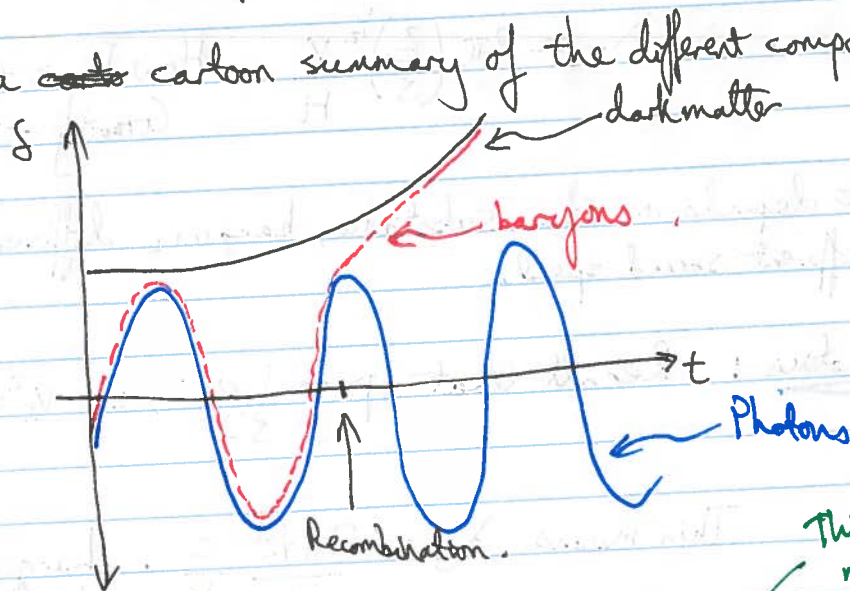 a cartoon summary of the different compo
δ
dark matter
baryons.
t
Photons
Recombination.
Thi